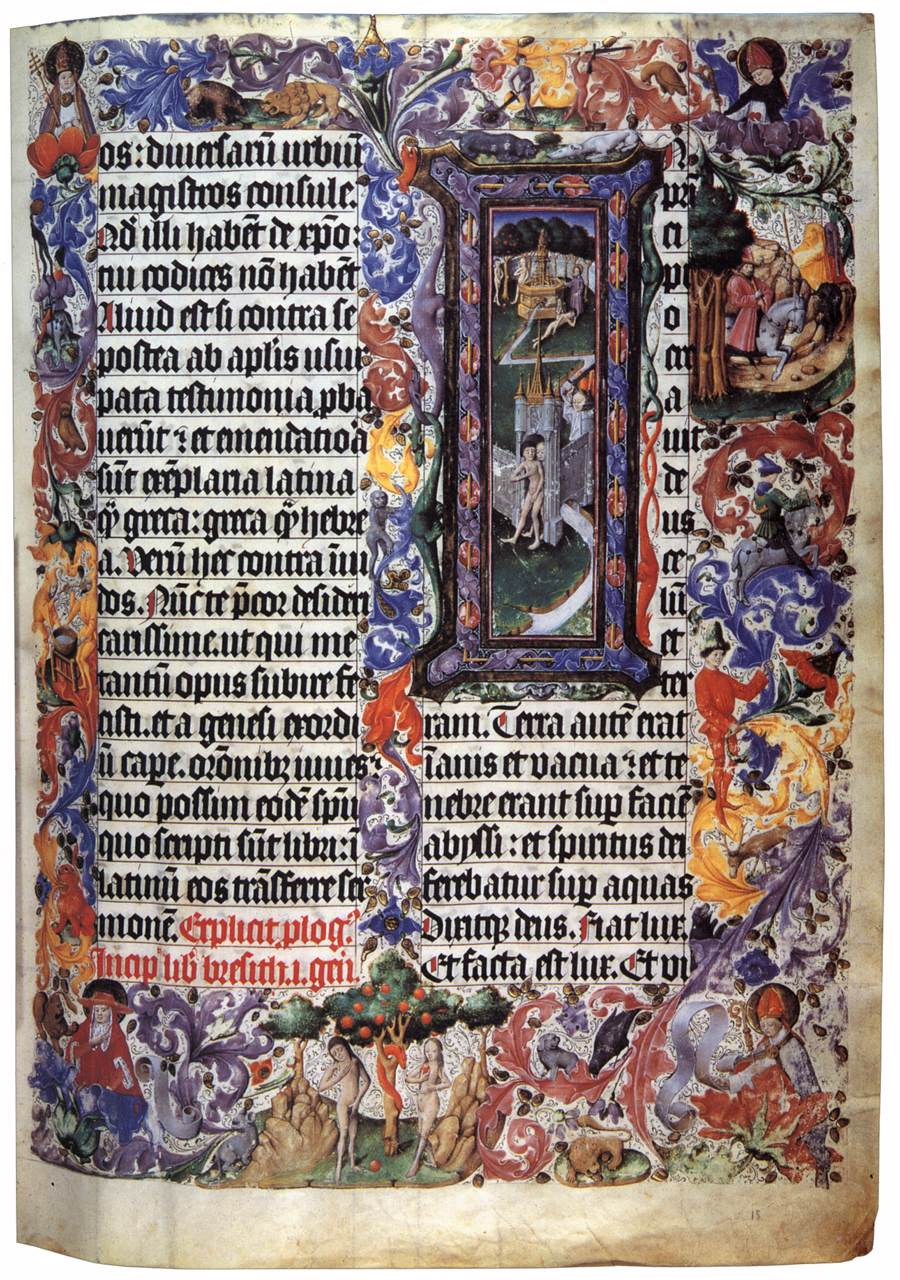 os: diuersarū urbiū
magistros consule.
Qd̄ illi habēt de xp̄o.
tui codices nō habēt
Aliud est si contra se
postea ab aplīs usur
pata testimonia ꝓba
uerūt ⁊ et emendatiora
sūt exēplaria latina
qȝ̄ greca: greca qȝ̄ hebre
a. Verū hec contra īui
dos. Nūc te p̄cor desideri
carissime. ut qui me
tantū opus subire fe
cisti. et a genesi exordi
ū cape. orōnibȝ iuues:
quo possim eodē spū
quo scripti sūt libri: ī
latinū eos trāsferre ser
monē. Explicit ꝓlog9
Incip̄ lib̄ bresith .i. gen̄
I N
pri
ci
pi
o
cre
a
uit
de
us
ce
lū
et
ter
ram. Terra autē erat
īanis et vacua: et te
nebre erant sup̱ faciē
abyssi: et spiritus dei
ferebatur sup̱ aquas
Dixitqȝ deus. Fiat lux.
Et facta est lux. Et vi
15